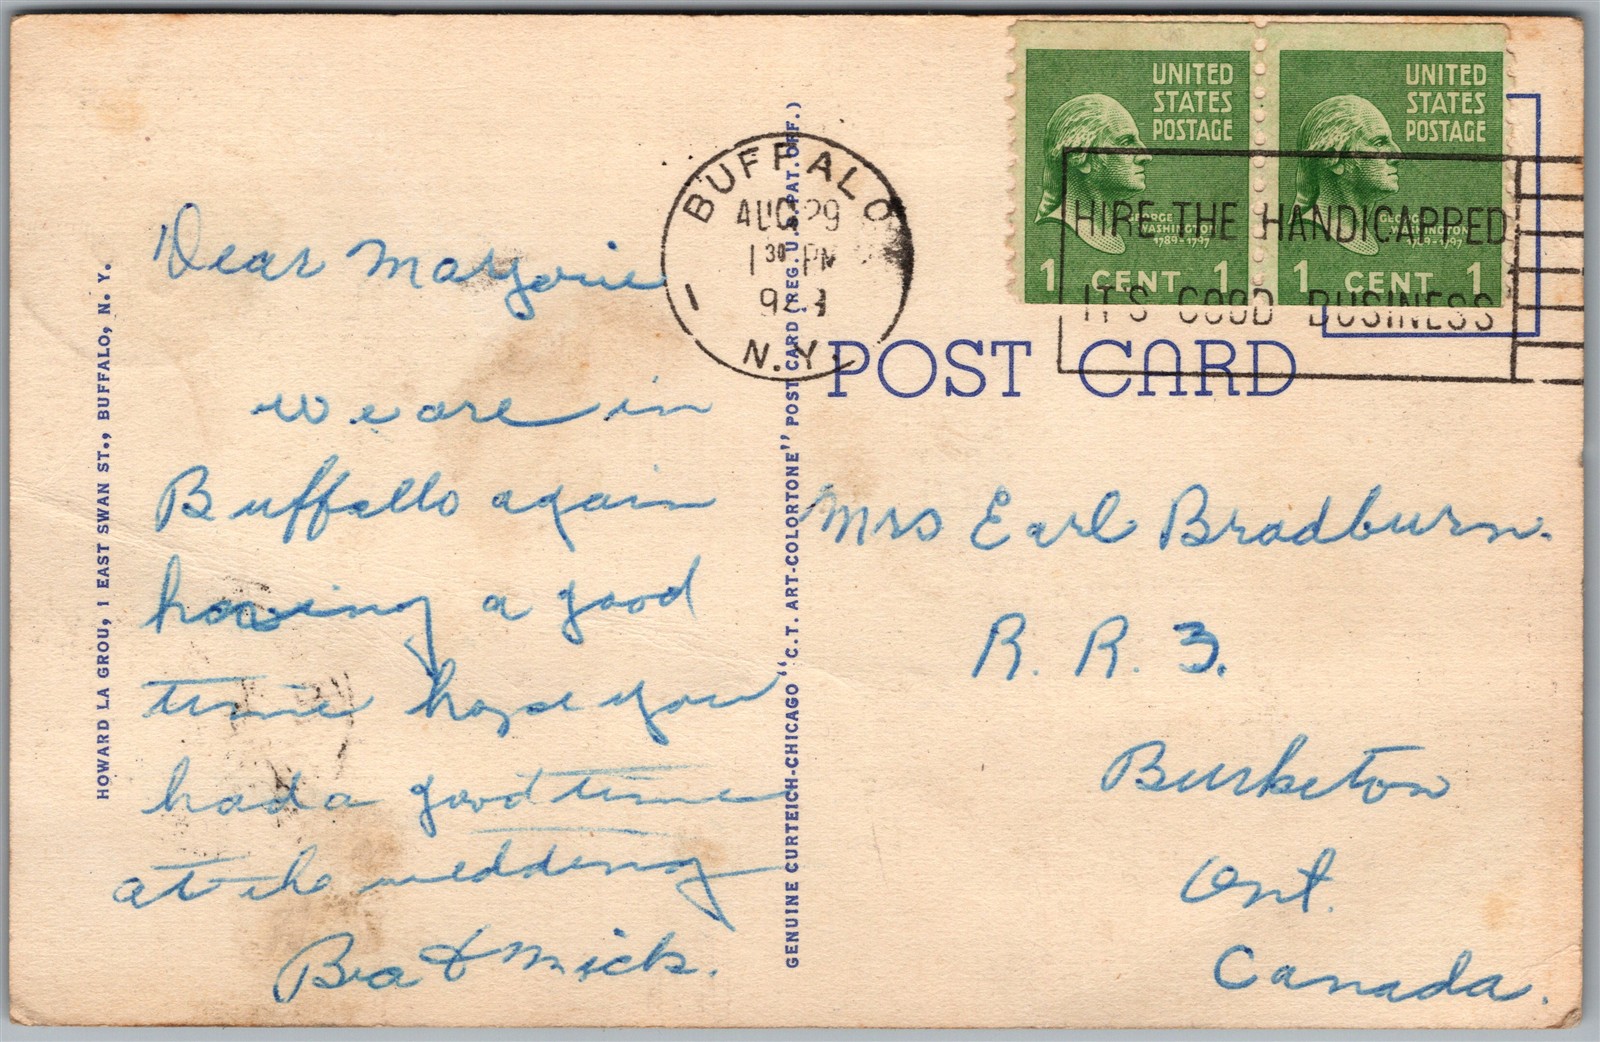 HOWARD LA GROU, 1 EAST SWAN ST., BUFFALO, N. Y.
Dear Marjorie
we are in
Buffallo again
having a good
time hope you
had a good time
at the wedding
& Mick.
GENUINE CURTEICH-CHICAGO "C.T. ART-COLORTONE" POST CARD (REG. U.S. PAT. OFF.)
BUFFALO
AUG 29
1 30 PM
1
N.Y.
UNITED
STATES
POSTAGE
GEORGE
WASHINGTON
1789-1797
1 CENT 1
UNITED
STATES
POSTAGE
GEORGE
WASHINGTON
1789-1797
1 CENT 1
HIRE THE HANDICAPPED
IT'S GOOD BUSINESS
POST CARD
Mrs Earl Bradburn.
R. R. 3.
Burketon
Ont.
Canada.